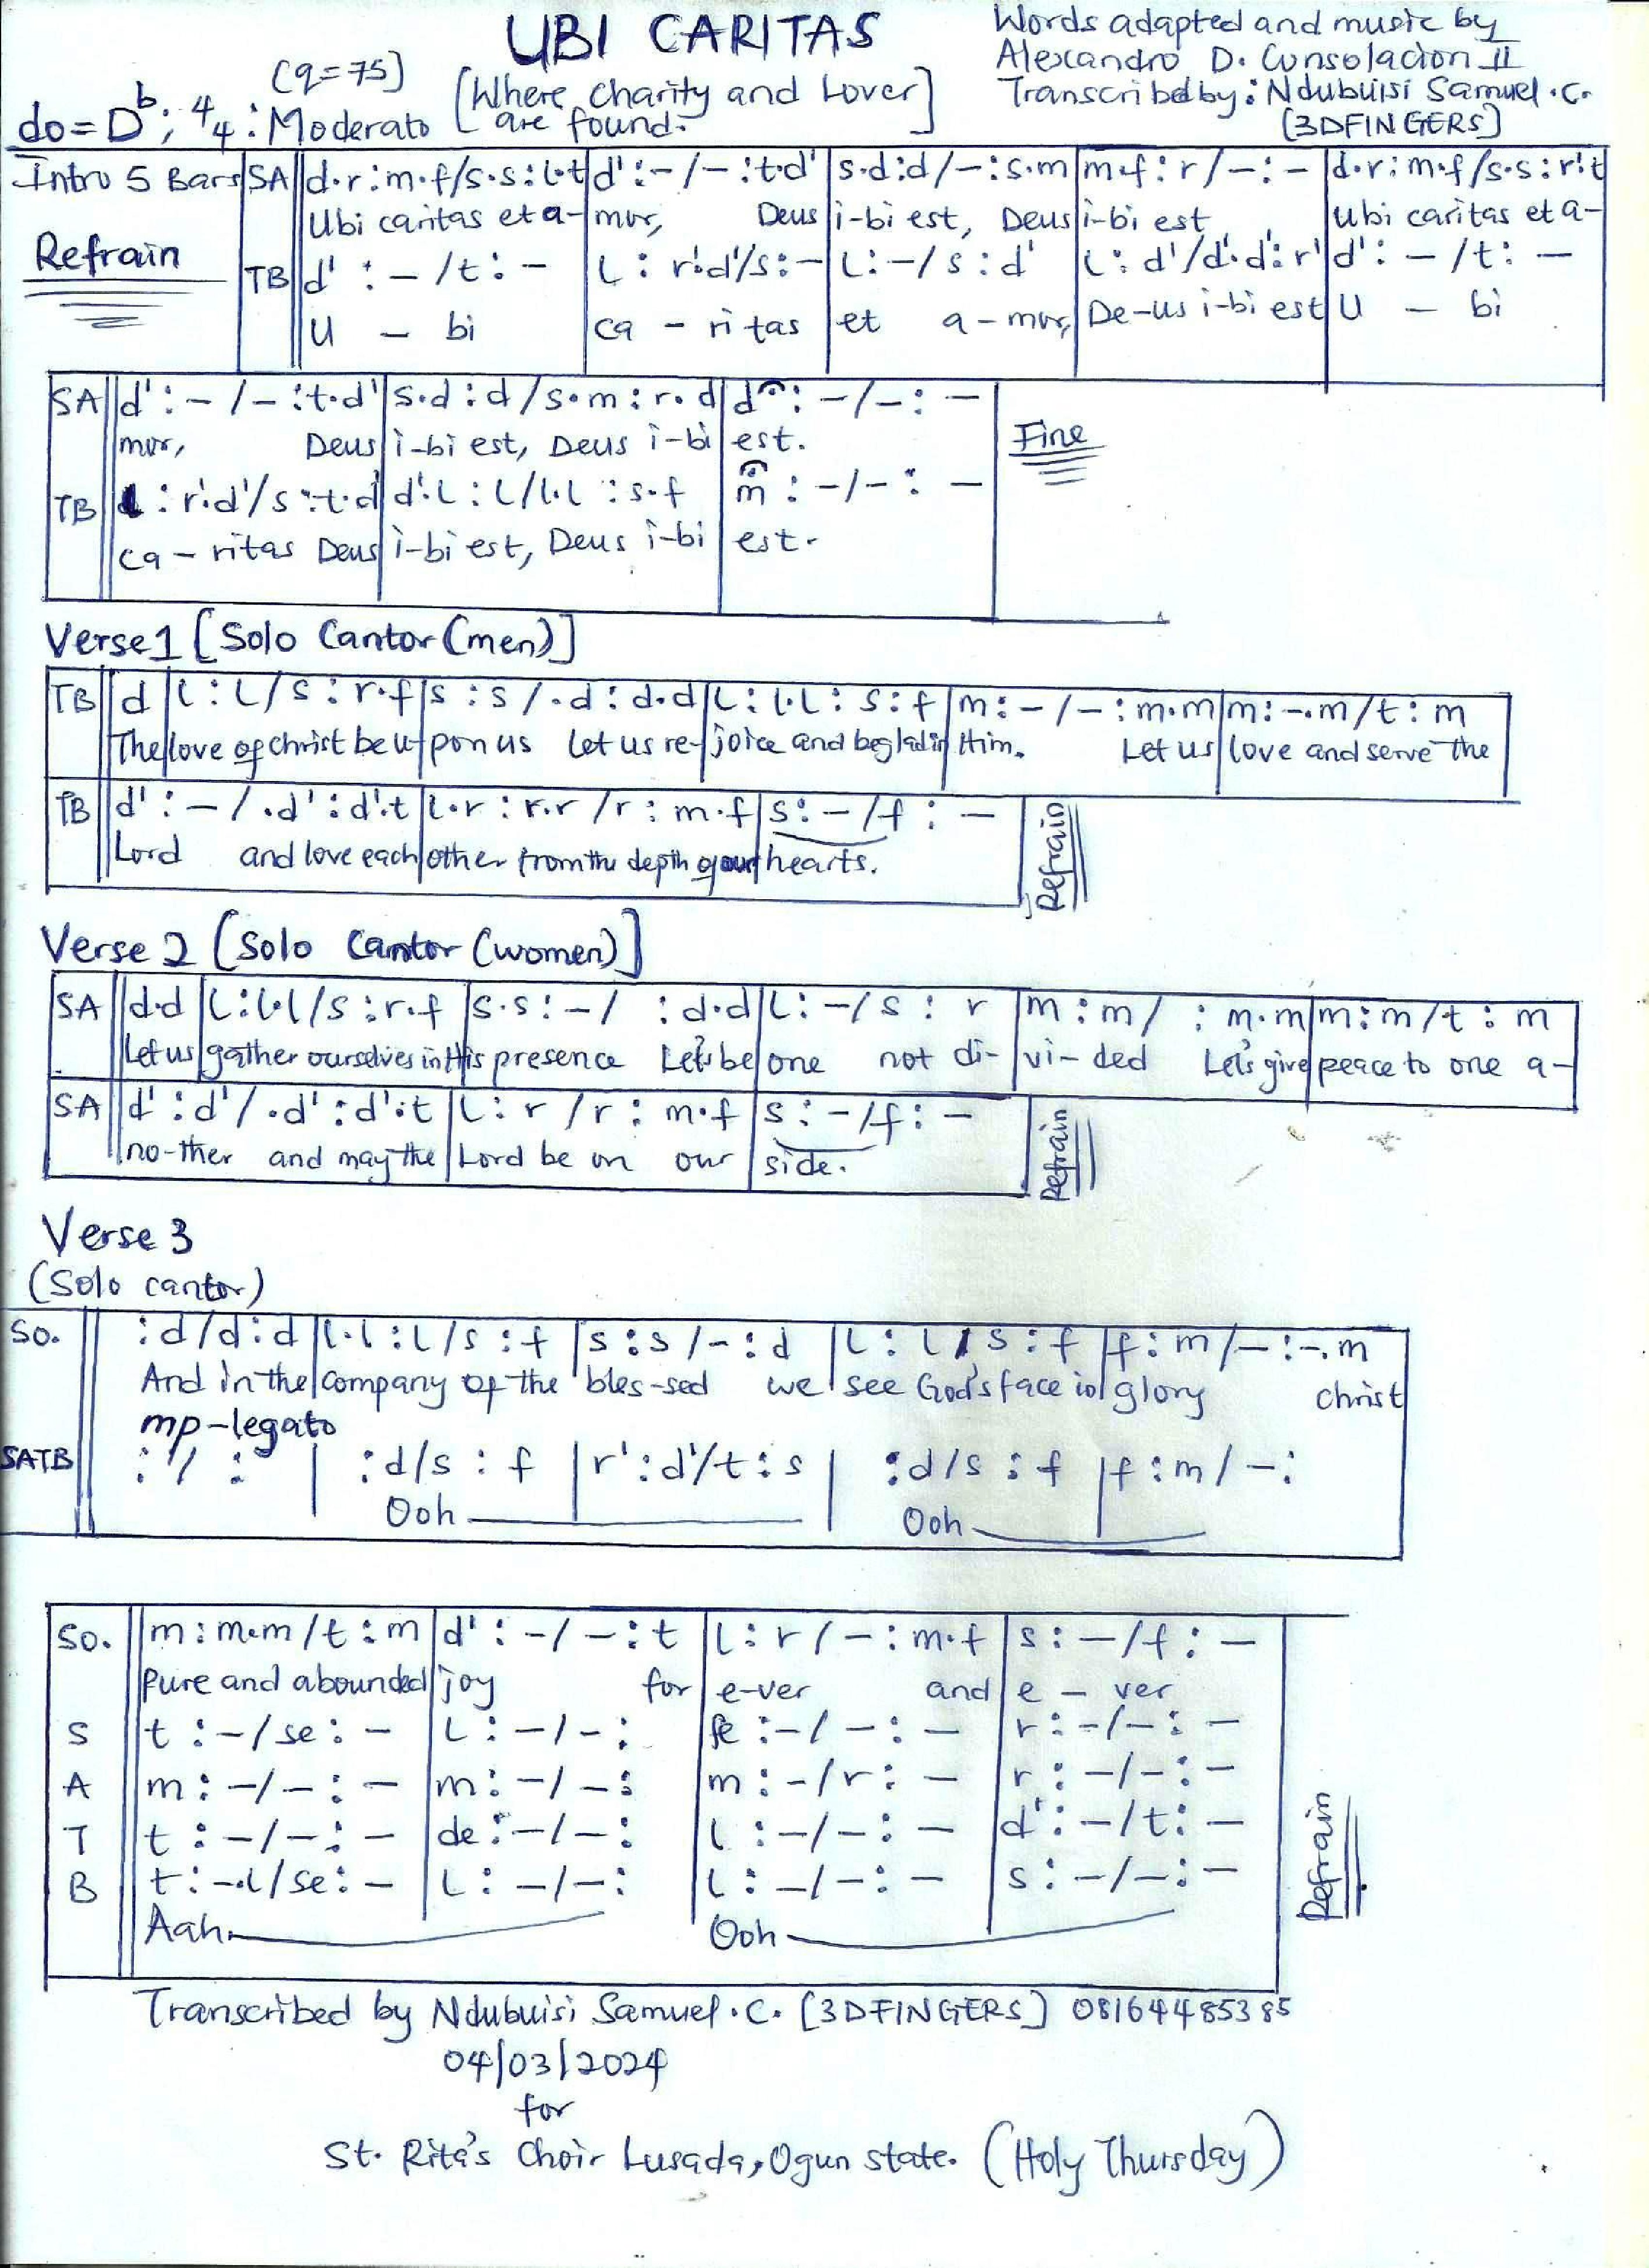 UBI CARITAS
Words adapted and music by
Alexandro D. Consolacion II
Transcribed by: Ndubuisi Samuel .C.
[3DFINGERS]
(q=75)
[Where charity and Lover
are found.]
do = Dᵇ; 4/4 : Moderato
Intro 5 Bars
Refrain
SA d.r:m.f/s.s:l.t|d':-/-:t.d'|s.d:d/-:s.m|m.f:r/-:-|d.r:m.f/s.s:r'.t
Ubi caritas et a-|mor, Deus|i-bi est, Deus|i-bi est|Ubi caritas et a-
TB d':-/t:-|l:r'.d'/s:-|l:-/s:d'|l:d'/d'.d':r'|d':-/t:-
U - bi|ca - ritas|et a-mor,|De-us i-bi est|U - bi
SA d':-/-:t.d'|s.d:d/s.m:r.d|d:-/-:-
mor, Deus|i-bi est, Deus i-bi|est.
Fine
TB l:r'.d'/s:t.d'|d'.l:l/l.l:s.f|m:-/-:-
ca-ritas Deus|i-bi est, Deus i-bi|est.
Verse 1 [Solo Cantor (men)]
TB d|l:l/s:r.f|s:s/.d:d.d|l:l.l:s:f|m:-/-:m.m|m:-.m/t:m
The|love of christ be u-|pon us let us re-|joice and be glad in|Him. Let us|love and serve the
TB d':-/.d':d'.t|l.r:r.r/r:m.f|s:-/f:-
Lord and love each|other from the depth of our|hearts.
Refrain
Verse 2 [Solo Cantor (women)]
SA d.d|l:l.l/s:r.f|s.s:-/ :d.d|l:-/s:r|m:m/ :m.m|m:m/t:m
Let us|gather ourselves in His|presence Let's be|one not di-|vi-ded Let's give|peace to one a-
SA d':d'/.d':d'.t|l:r/r:m.f|s:-/f:-
no-ther and may the|Lord be on our|side.
Refrain
Verse 3
(Solo cantor)
So. :d/d:d|l.l:l/s:f|s:s/-:d|l:l/s:f|f:m/-:-.m
And in the|company of the|bles-sed we|see God's face in|glory christ
mp-legato
SATB :/ :|:d/s:f|r':d'/t:s|:d/s:f|f:m/-:
Ooh Ooh
So. m:m.m/t:m|d':-/-:t|l:r/-:m.f|s:-/f:-
Pure and abounded|joy for|e-ver and|e - ver
S t:-/se:-|l:-/-:|fe:-/-:-|r:-/-:-
A m:-/-:-|m:-/-:|m:-/r:-|r:-/-:-
T t:-/-:-|de:-/-:|l:-/-:-|d':-/t:-
B t:-.l/se:-|l:-/-:|l:-/-:-|s:-/-:-
Aah Ooh
Refrain
Transcribed by Ndubuisi Samuel .C. [3DFINGERS] 08164485385
04/03/2024
for
St. Rita's Choir Lusada, Ogun state. (Holy Thursday)